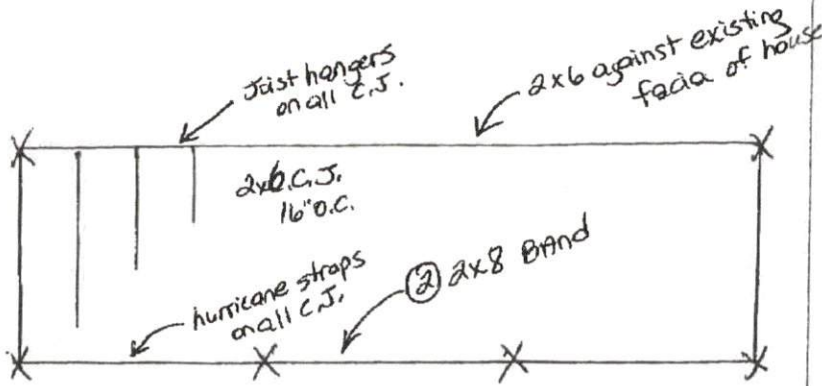 Joist hangers
on all C.J.
2x6 against existing
facia of house
2x6.C.J.
16"O.C.
hurricane straps
on all C.J.
② 2x8 BANd